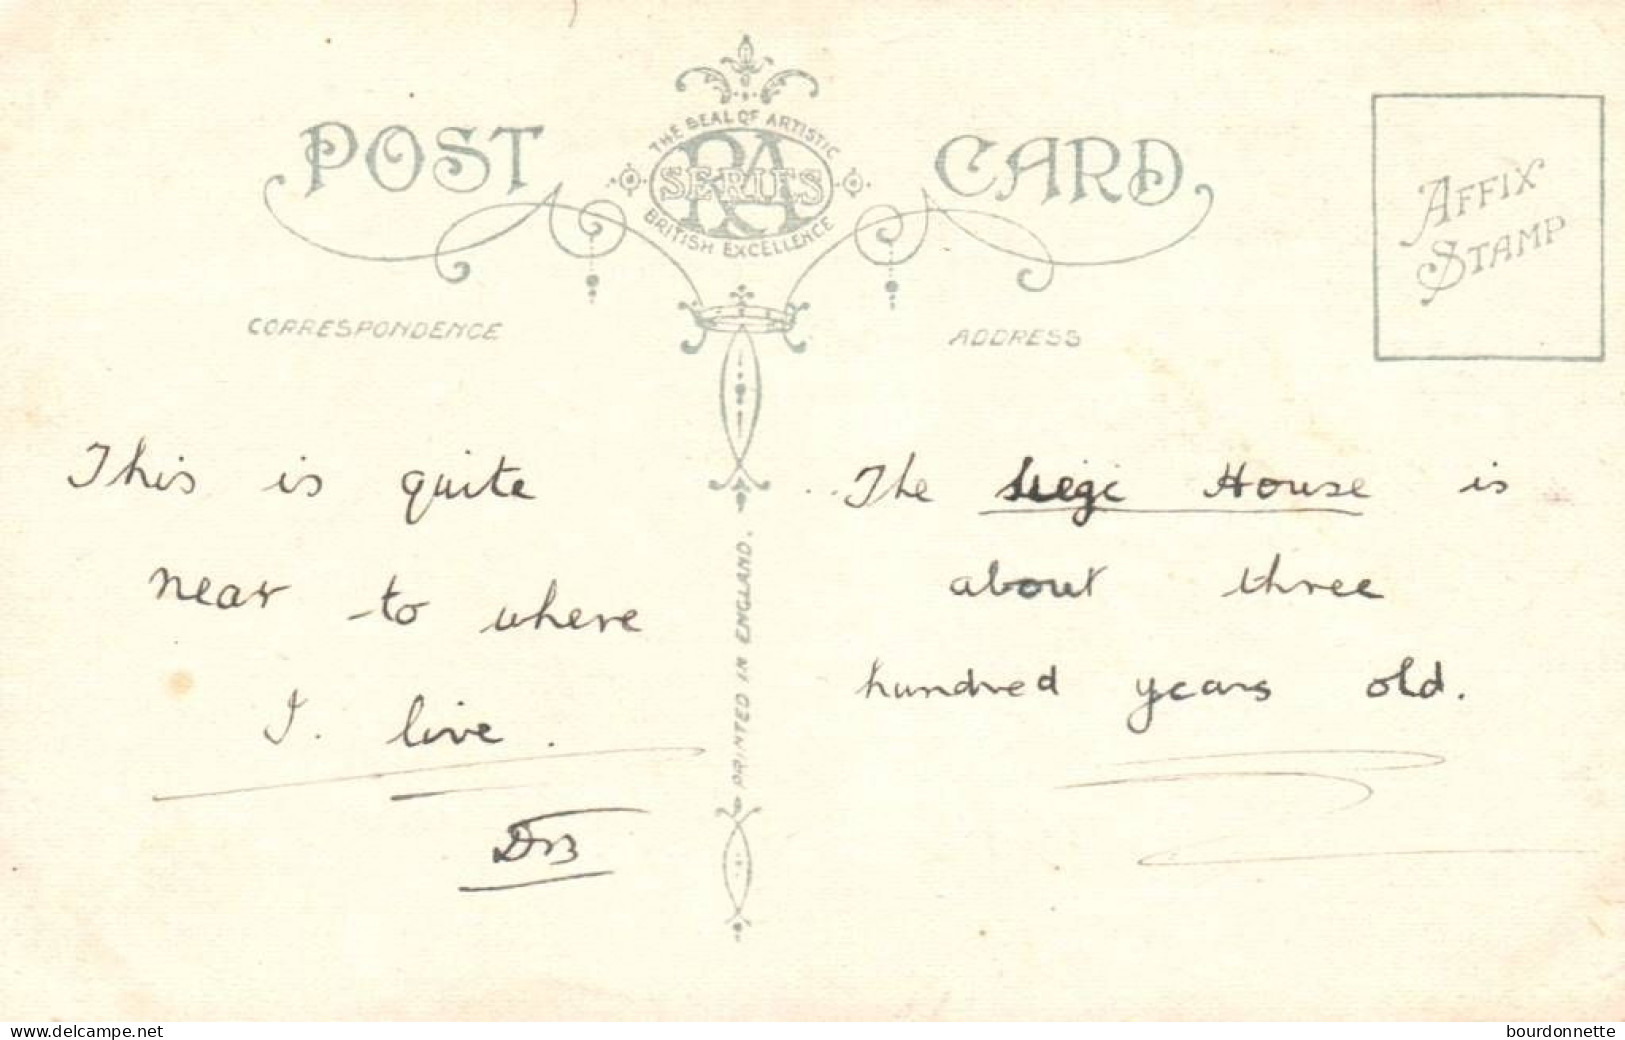 POST CARD
THE SEAL OF ARTISTIC
RA
SERIES
BRITISH EXCELLENCE
AFFIX
STAMP
CORRESPONDENCE
ADDRESS
This is quite
near to where
I. live.
PRINTED IN ENGLAND.
The Siege House is
about three
hundred years old.
www.delcampe.net
bourdonnette